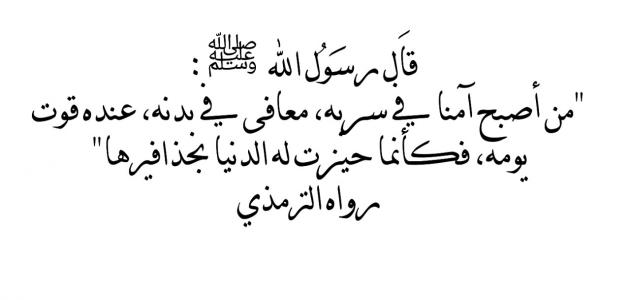 قَالَ رسَوُل الله ﷺ :
"من أصبح آمنا في سربه، معافى في بدنه، عنده قوت
يومه، فكأنما حيزت له الدنيا بحذافيرها"
رواه الترمذي